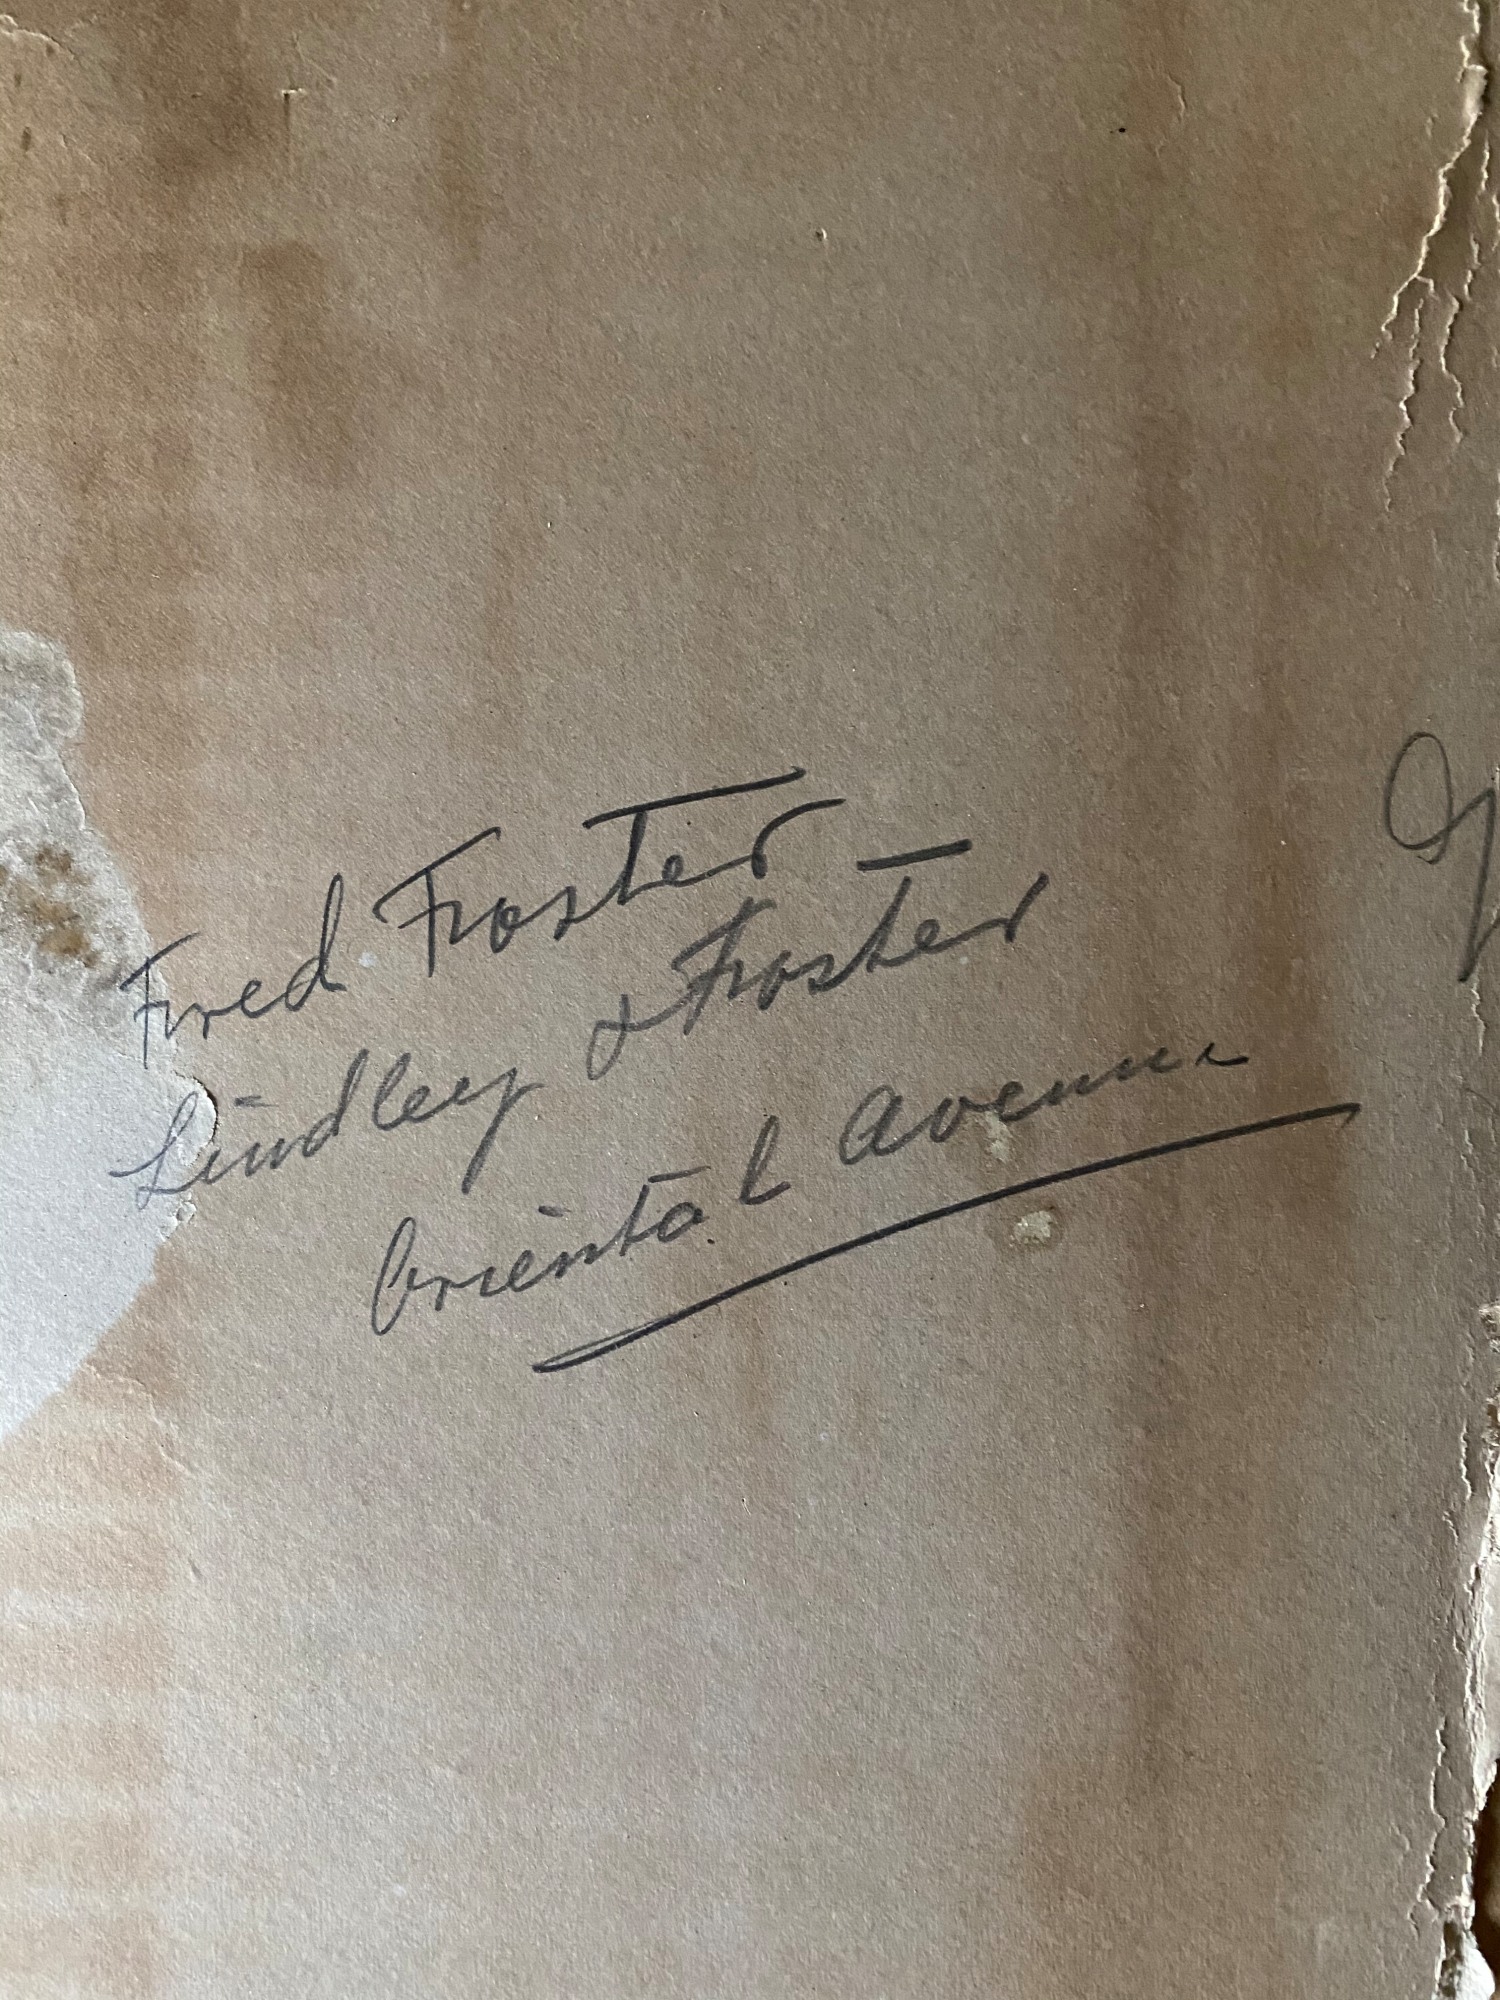 Fred Foster
Lindley & Foster
Oriental Avenue